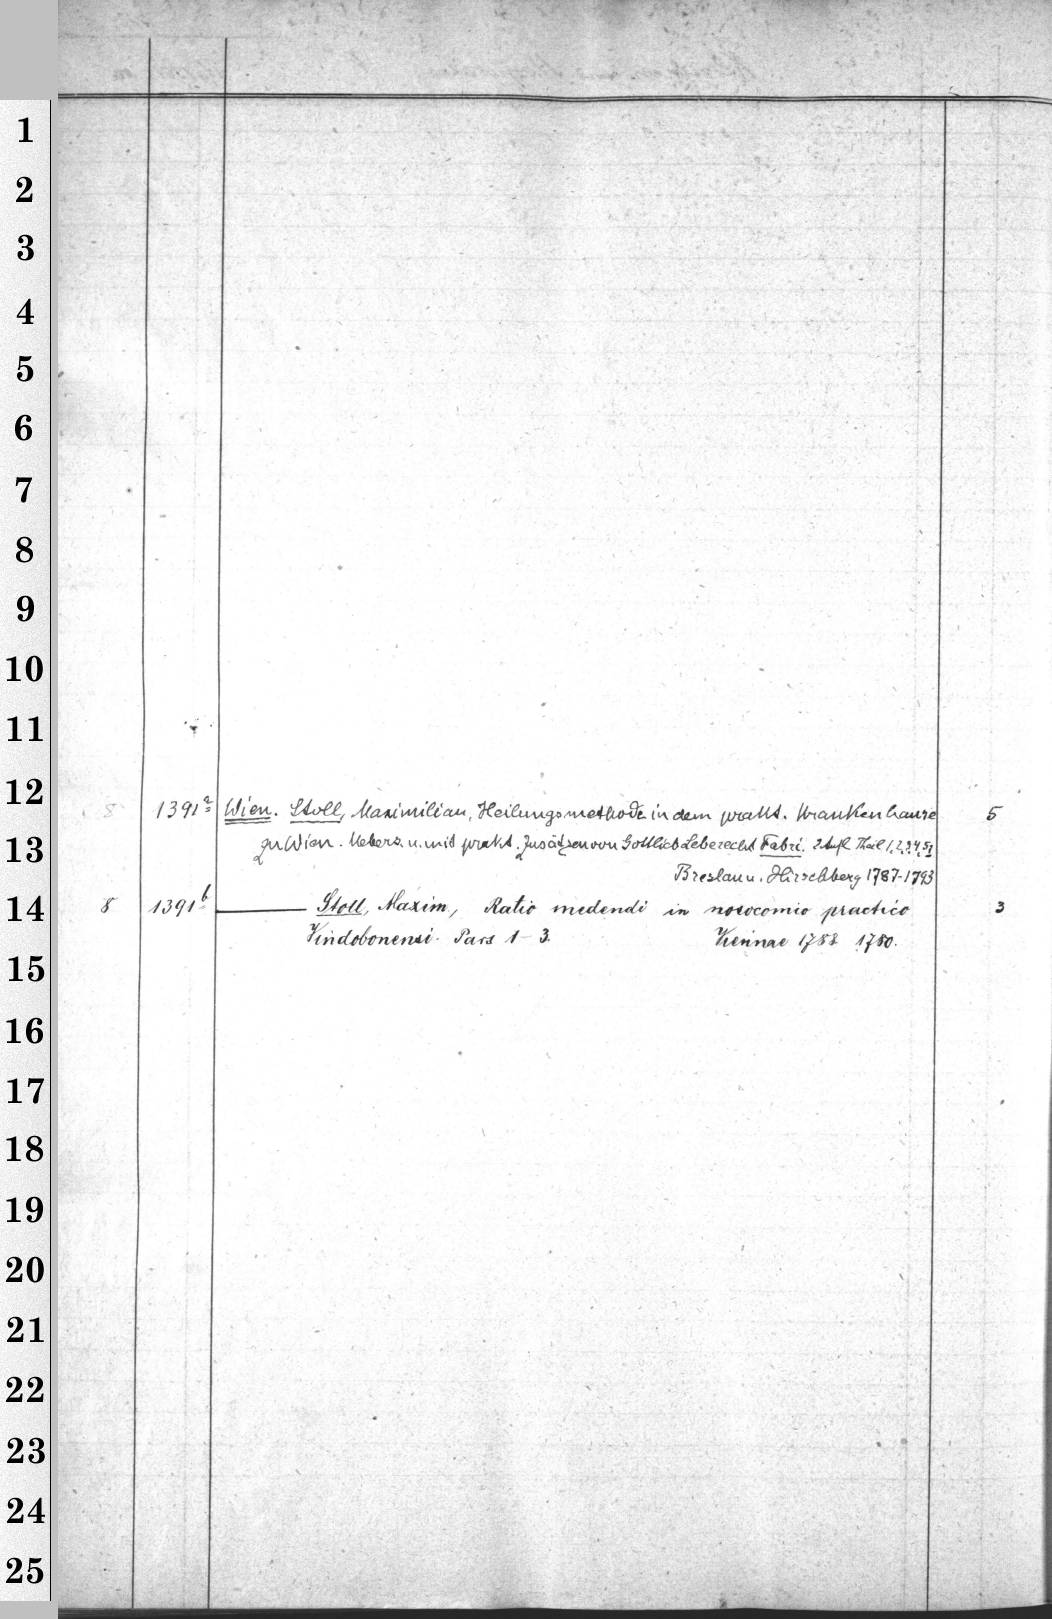 1
2
3
4
5
6
7
8
9
10
11
12
13
14
15
16
17
18
19
20
21
22
23
24
25
8 1391a Wien. Stoll, Maximilian, Heilungsmethode in dem prakt. Krankenhause 5
zu Wien. Uebers. u. mit prakt. Zusätzen von Gottlieb Leberecht Fabri. 2 Aufl. Theil 1,2,3,4,5,
Breslau u. Hirschberg 1787-1793
8 1391b Stoll, Maxim, Ratio medendi in nosocomio practico 3
Vindobonensi. Pars 1-3. Viennae 1788 1780.